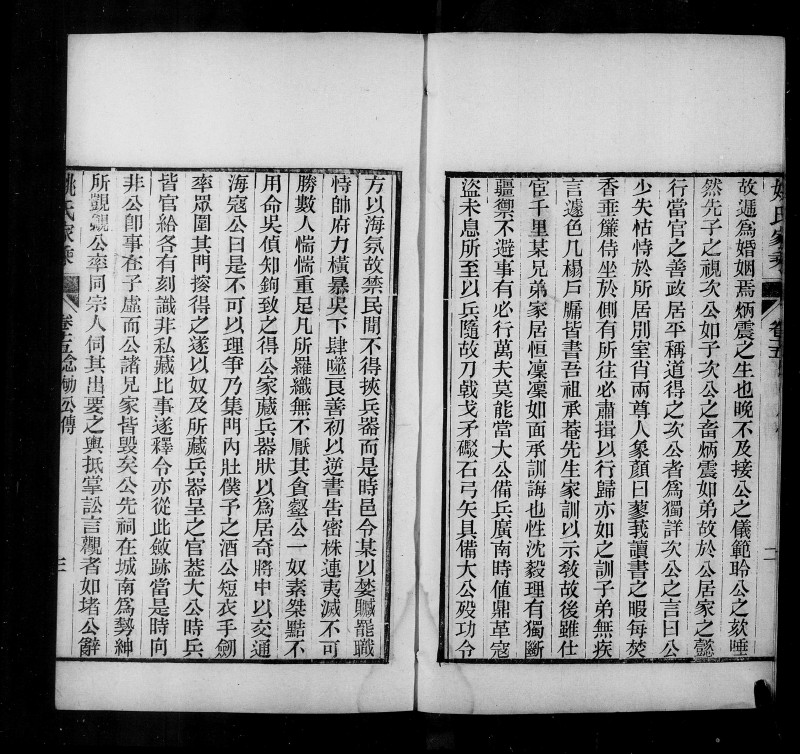 故遞爲婚姻焉炳震之生也晚不及接公之儀範聆公之欬唾
然先子之視次公如子次公之畜炳震如弟故於公居家之懿
行當官之善政居平稱道得之次公者爲獨詳次公之言曰公
少失怙恃於所居別室肖兩尊人象顏曰蓼莪讀書之暇每焚
香垂簾侍坐於側有所往必肅揖以行歸亦如之訓子弟無疾
言遽色几榻戶牖皆書吾祖承菴先生家訓以示敎故後雖仕
宦千里某兄弟家居恒凜凜如面承訓誨也性沈毅理有獨斷
疆禦不避事有必行萬夫莫能當大公備兵廣南時値鼎革寇
盜未息所至以兵隨故刀戟戈矛礮石弓矢具備大公歿功令
方以海氛故禁民間不得挾兵器而是時邑令某以婪贓罷職
恃帥府力橫暴吳下肆噬良善初以逆書告密株連夷滅不可
勝數人惴惴重足凡所羅織無不厭其貪壑公一奴素桀黠不
用命吳偵知鉤致之得公家藏兵器狀以爲居奇將中以交通
海寇公曰是不可以理爭乃集門內壯僕予之酒公短衣手劒
率眾圍其門搜得之遂以奴及所藏兵器呈之官葢大公時兵
皆官給各有刻識非私藏比事遂釋令亦從此斂跡當是時向
非公卽事在子虛而公諸兄家皆毀矣公先祠在城南爲勢紳
所覬覦公率同宗人伺其出要之輿抵掌訟言觀者如堵公辭
姚氏家乘
卷十五
公傳
三